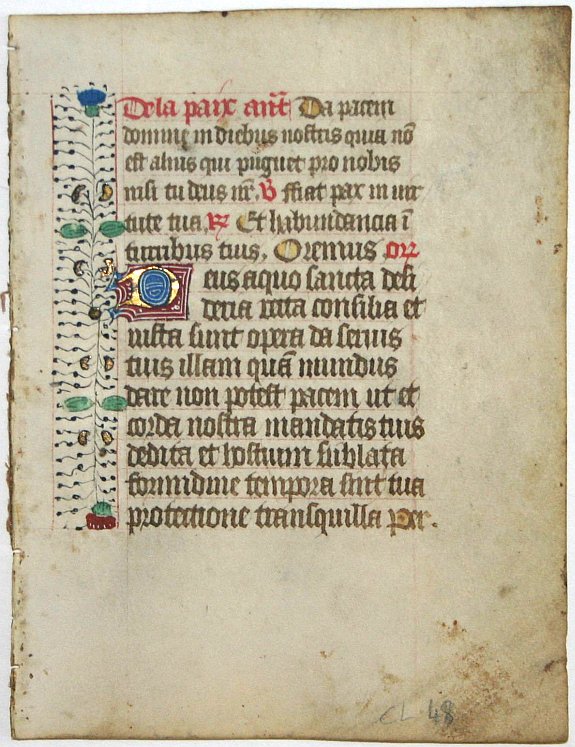 De la paix ant̄ Da pacem
domine in diebus nostris quia nō
est alius qui pugnet pro nobis
nisi tu deus nr̄. V̄ ffiat pax in uir
tute tua. R Et habundancia ī
turribus tuis. Oremus orō
Deus a quo sancta desi
deria recta consilia et
iusta sunt opera da seruis
tuis illam quā mundus
dare non potest pacem ut et
corda nostra mandatis tuis
dedita et hostium sublata
formidine tempora sint tua
protectione tranquilla Per.
CL 48